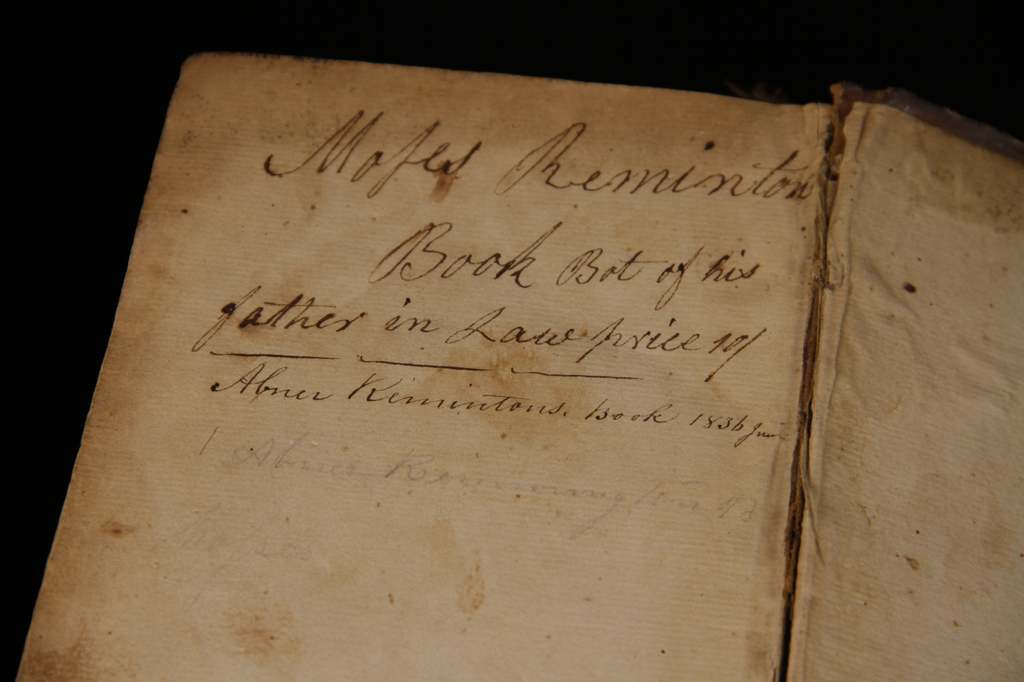 Moſes Reminton
Book Bot of his
father in Law price 10/
Abner Remintons. Book 1836 June
Abner Remmington